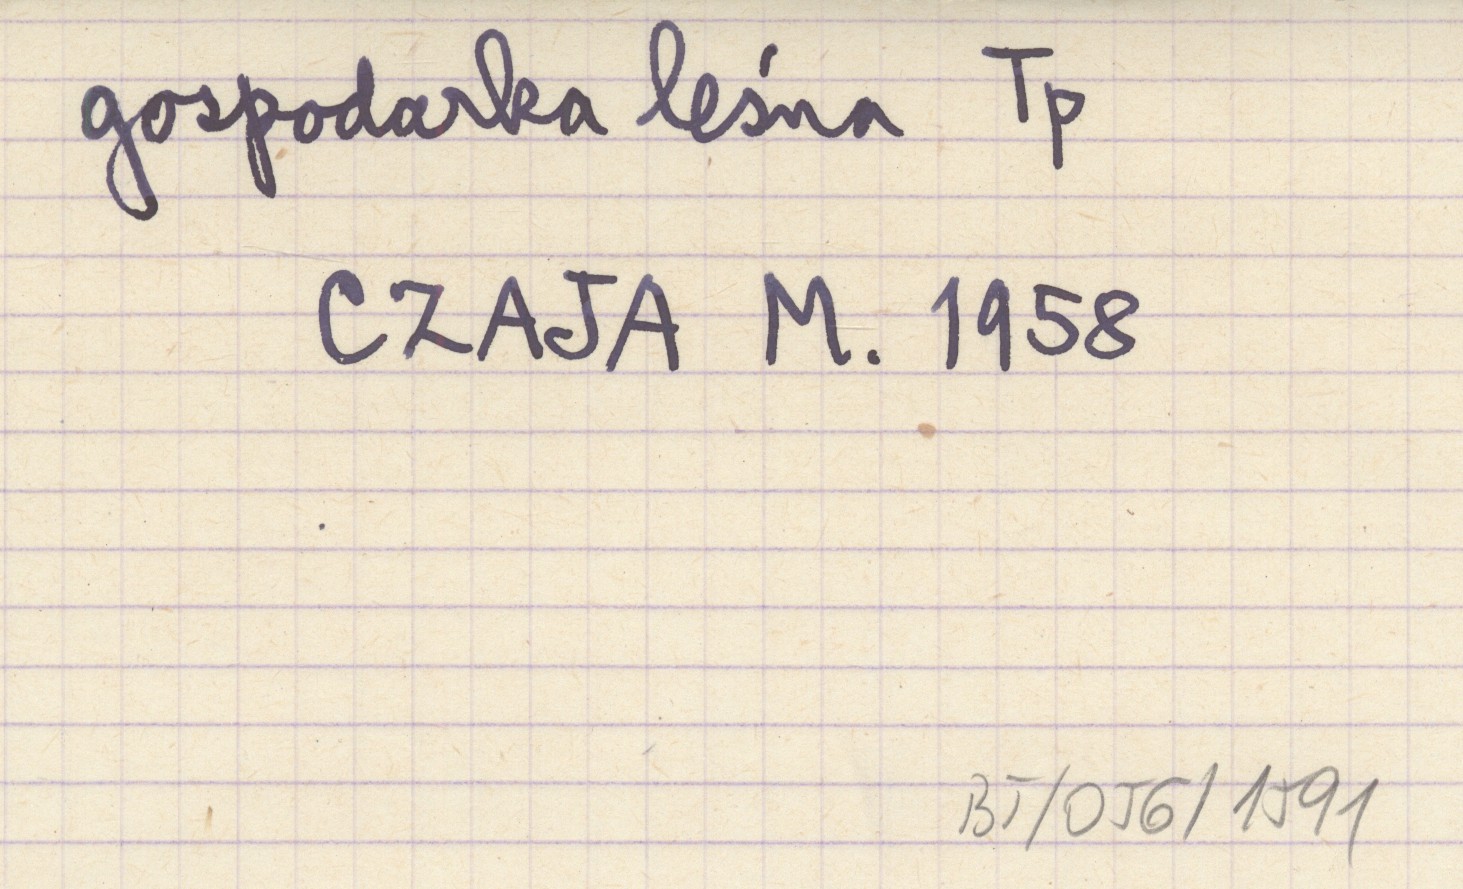 gospodarka leśna Tp
CZAJA M. 1958
BT/OJG/1591